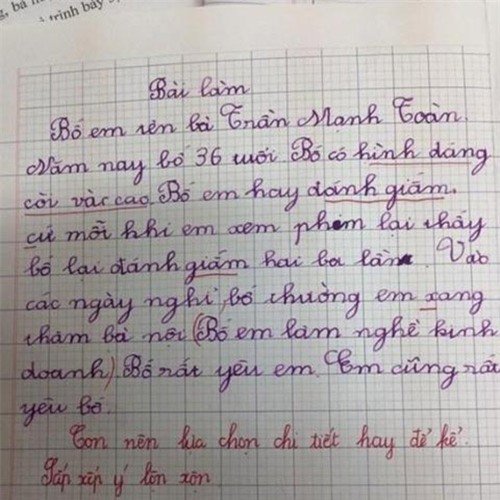 trình bày
Bài làm
Bố em tên bà Trần Mạnh Toàn.
Năm nay bố 36 tuổi Bố có hình dáng
còi vác cao. Bố em hay đánh giấm.
cứ mỗi khi em xem phim lại thấy
bố lại đánh giấm hai ba lần. Vào
các ngày nghỉ bố thường em xang
thăm bà nội (Bố em làm nghề kinh
doanh) Bố rất yêu em. Em cũng rất
yêu bố.
Con nên lựa chọn chi tiết hay để kể.
Sắp xếp ý lộn xộn